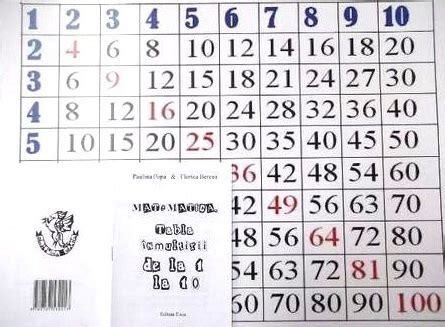 1 2 3 4 5 6 7 8 9 10
2 4 6 8 10 12 14 16 18 20
3 6 9 12 15 18 21 24 27 30
4 8 12 16 20 24 28 32 36 40
5 10 15 20 25 30 35 40 45 50
36 42 48 54 60
42 49 56 63 70
48 56 64 72 80
54 63 72 81 90
60 70 80 90 100
Paulina Popa & Florica Bereni
MATEMATICA
Tabla
înmulţirii
de la 1
la 10
Editura